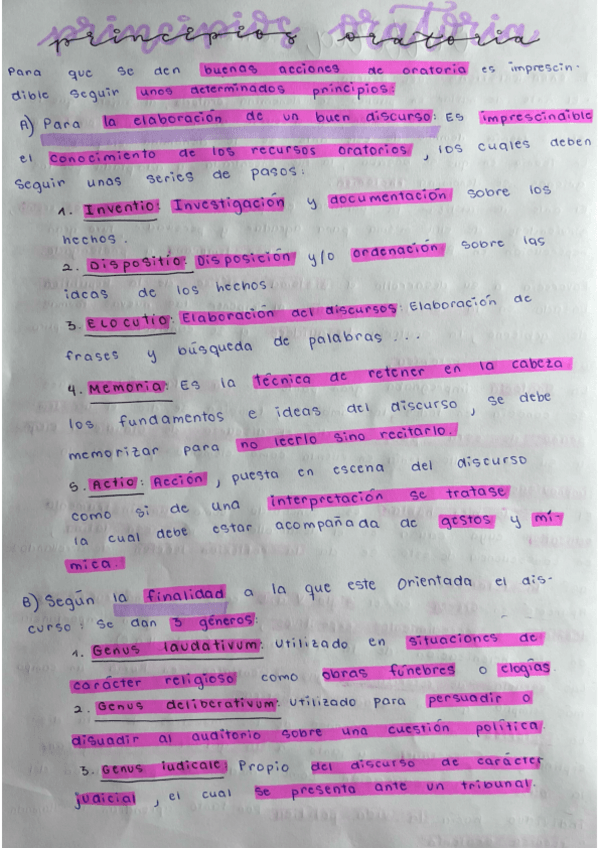 principios oratoria
Para que se den buenas acciones de oratoria es imprescin-
dible seguir unos determinados principios:
A) Para la elaboración de un buen discurso: Es imprescindible
el conocimiento de los recursos oratorios, los cuales deben
seguir unas series de pasos:
1. Inventio: Investigación y documentación sobre los
hechos.
2. Dispositio: Disposición y/o ordenación sobre las
ideas de los hechos.
3. Elocutio: Elaboración del discursos: Elaboración de
frases y búsqueda de palabras...
4. Memoria: Es la técnica de retener en la cabeza
los fundamentos e ideas del discurso, se debe
memorizar para no leerlo sino recitarlo.
5. Actio: Acción, puesta en escena del discurso
como si de una interpretación se tratase
la cual debe estar acompañada de gestos y mí-
mica.
B) Según la finalidad a la que este orientada el dis-
curso: Se dan 3 géneros:
1. Genus laudativum: Utilizado en situaciones de
carácter religioso como obras fúnebres o elogias.
2. Genus deliberativum: Utilizado para persuadir o
disuadir al auditorio sobre una cuestión política.
3. Genus iudicale: Propio del discurso de carácter
judicial, el cual se presenta ante un tribunal.